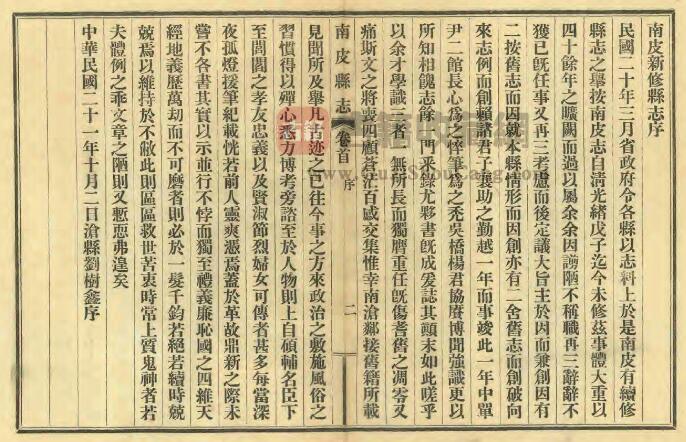 南皮新修縣志序
民國二十年三月省政府令各縣以志料上於是南皮有續修
縣志之舉按南皮志自清光緒戊子迄今未修茲事體大重以
四十餘年之曠闕而過以屬余余因謭陋不稱職再三辭辭不
獲已旣任事又再三考慮而後定議大旨主於因而兼創因有
二按舊志而因就本縣情形而因創亦有二舍舊志而創破向
來志例而創賴諸君子襄助之勤越一年而事竣此一年中單
尹二館長心為之悴筆為之禿吳橋楊君協賡博聞強識更以
所知相餽志餘一門采錄尤夥書旣成爰誌其顛末如此嗟乎
以余才學識三者一無所長而獨膺重任旣傷耆舊之凋零又
痛斯文之將喪四顧蒼茫百感交集惟幸南滄鄰接舊籍所載
南皮縣志 卷首 序 二
見聞所及舉凡古迹之已往今事之方來政治之敷施風俗之
習慣得以殫心悉力博考旁諮至於人物則上自碩輔名臣下
至閭閻之孝友忠義以及賢淑節烈婦女可傳者甚多每當深
夜孤燈援筆紀載恍若前人靈爽憑焉蓋於革故鼎新之際未
嘗不各書其實以示並行不悖而獨至禮義廉恥國之四維天
經地義歷萬劫而不可磨者則必於一髮千鈞若絕若續時兢
兢焉以維持於不敝此則區區救世苦衷時常上質鬼神者若
夫體例之乖文章之陋則又慙恧弗遑矣
中華民國二十一年十月二日滄縣劉樹鑫序